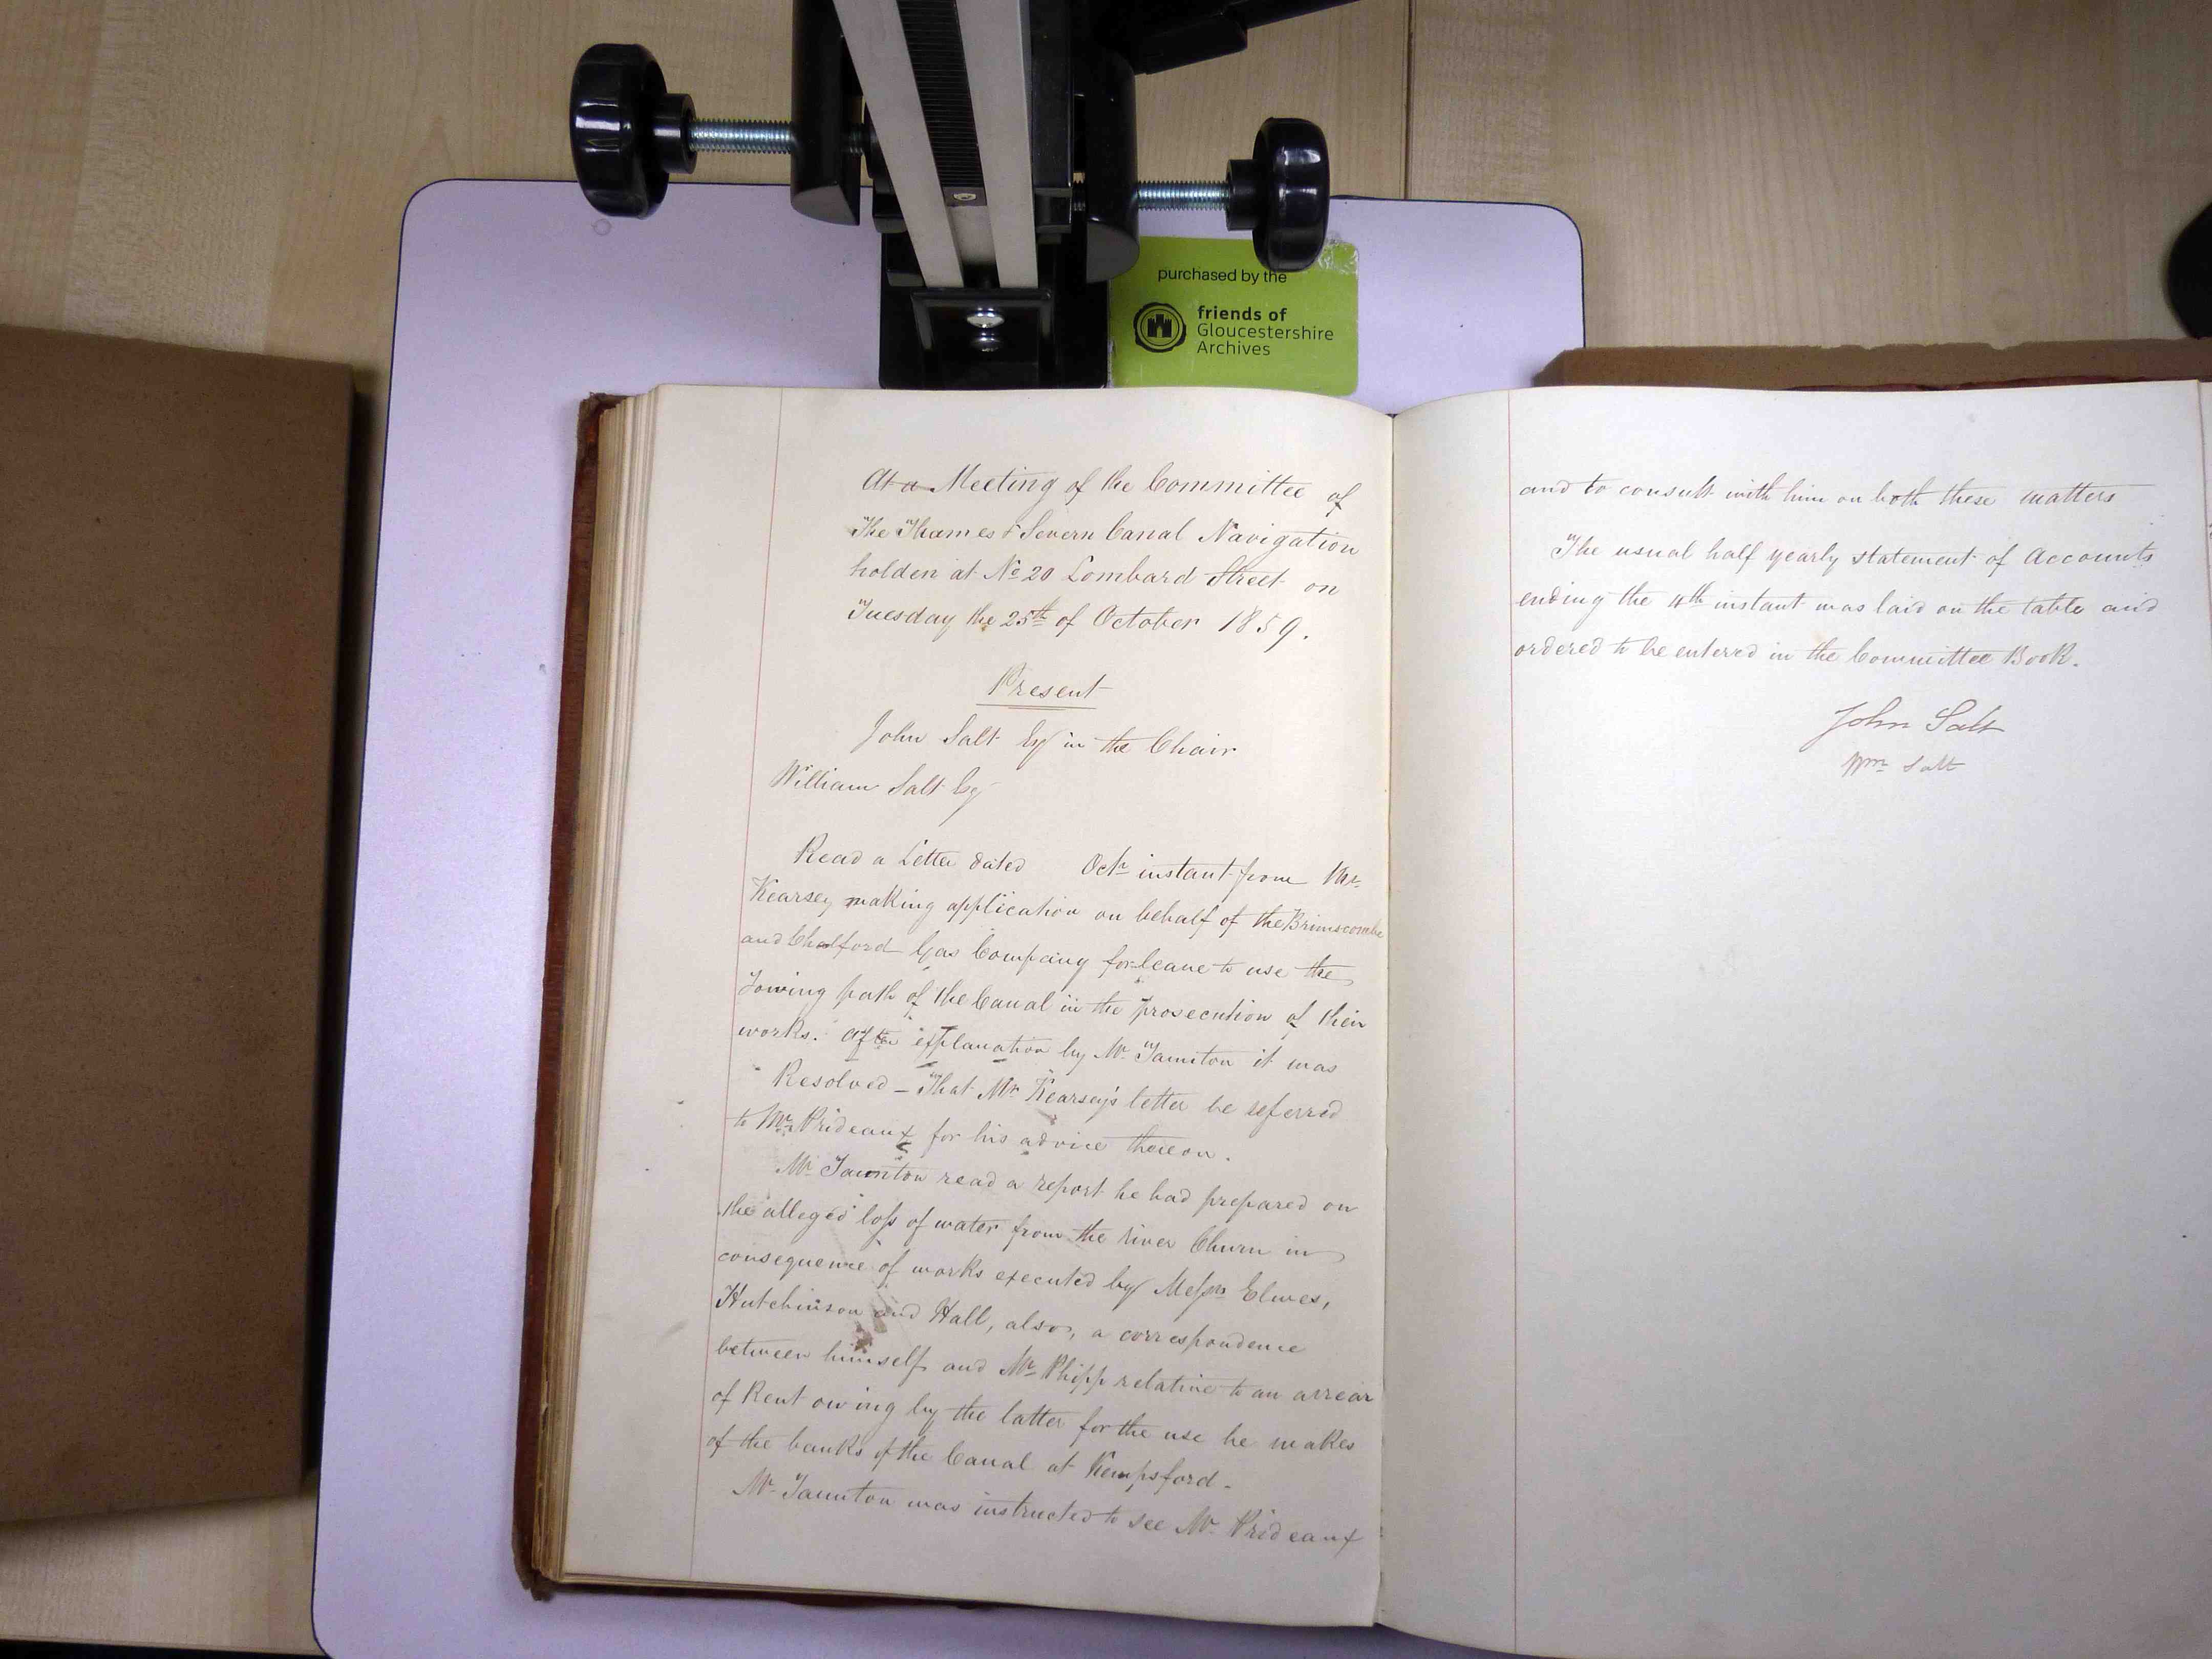 purchased by the
friends of
Gloucestershire
Archives
At a Meeting of the Committee of
The Thames & Severn Canal Navigation
holden at No 20 Lombard Street on
Tuesday the 25th of October 1859.
Present
John Salt Esq in the Chair
William Salt Esq
Read a Letter dated Octr instant from Mr.
Kearsey making application on behalf of the Brimscombe
and Chalford Gas Company for leave to use the
Towing path of the Canal in the prosecution of their
works. After explanation by Mr. Taunton it was
Resolved – That Mr Kearsey's letter be referred
to Mr. Prideaux for his advice thereon.
Mr. Taunton read a report he had prepared on
the alleged loss of water from the river Churn in
consequence of works executed by Messrs Elwes,
Hutchinson and Hall, also, a correspondence
between himself and Mr Phipp relative to an arrear
of Rent owing by the latter for the use he makes
of the banks of the Canal at Kempsford.
Mr. Taunton was instructed to see Mr. Prideaux
and to consult with him on both these matters
The usual half yearly statement of Accounts
ending the 4th instant was laid on the table and
ordered to be entered in the Committee Book.
John Salt
Wm Salt